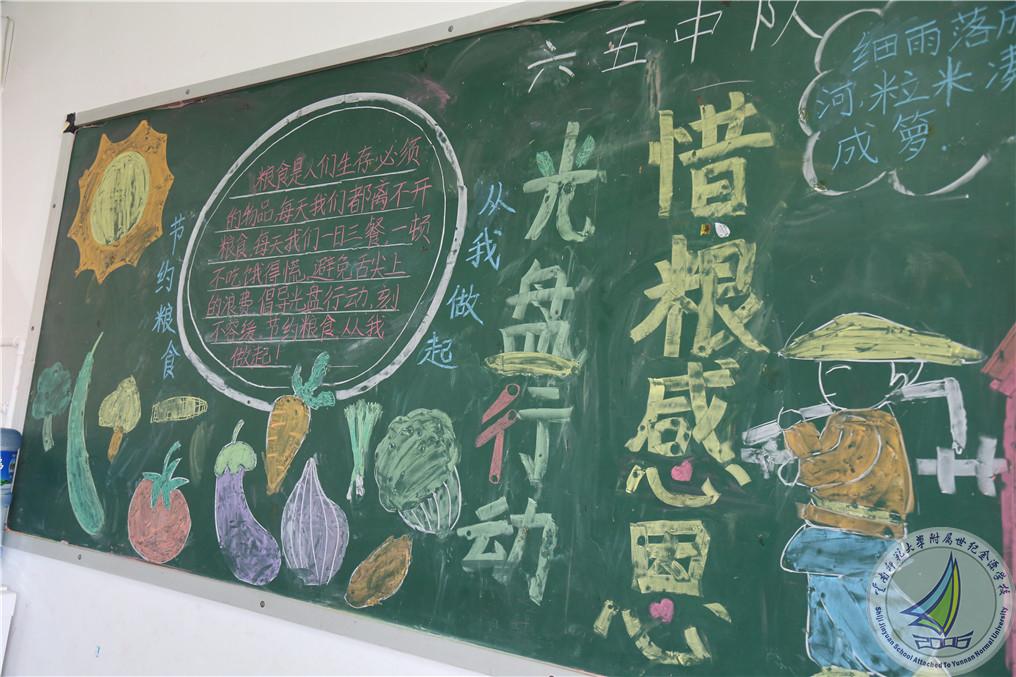 六五中队
细雨落成
河,粒米凑
成箩.
惜粮感恩
光盘行动
从我做起
节约粮食
粮食是人们生存必须
的物品,每天我们都离不开
粮食,每天我们一日三餐,一顿
不吃饿得慌,避免舌尖上
的浪费,倡导光盘行动,刻
不容缓,节约粮食,从我
做起!
云南师范大学附属世纪金源学校
Shiji Jinyuan School Attached To Yunnan Normal University
2006